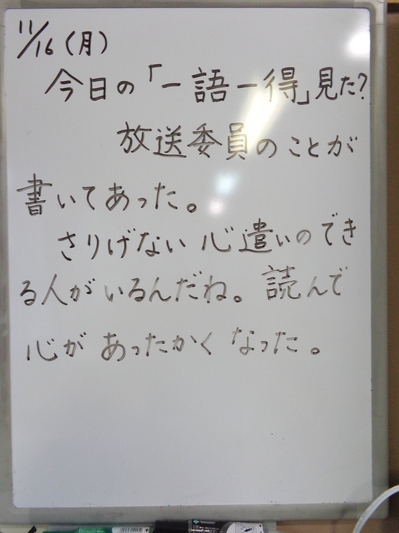 11/16(月)
今日の「一語一得」見た?
放送委員のことが
書いてあった。
さりげない心遣いのでき
る人がいるんだね。読んで
心があったかくなった。